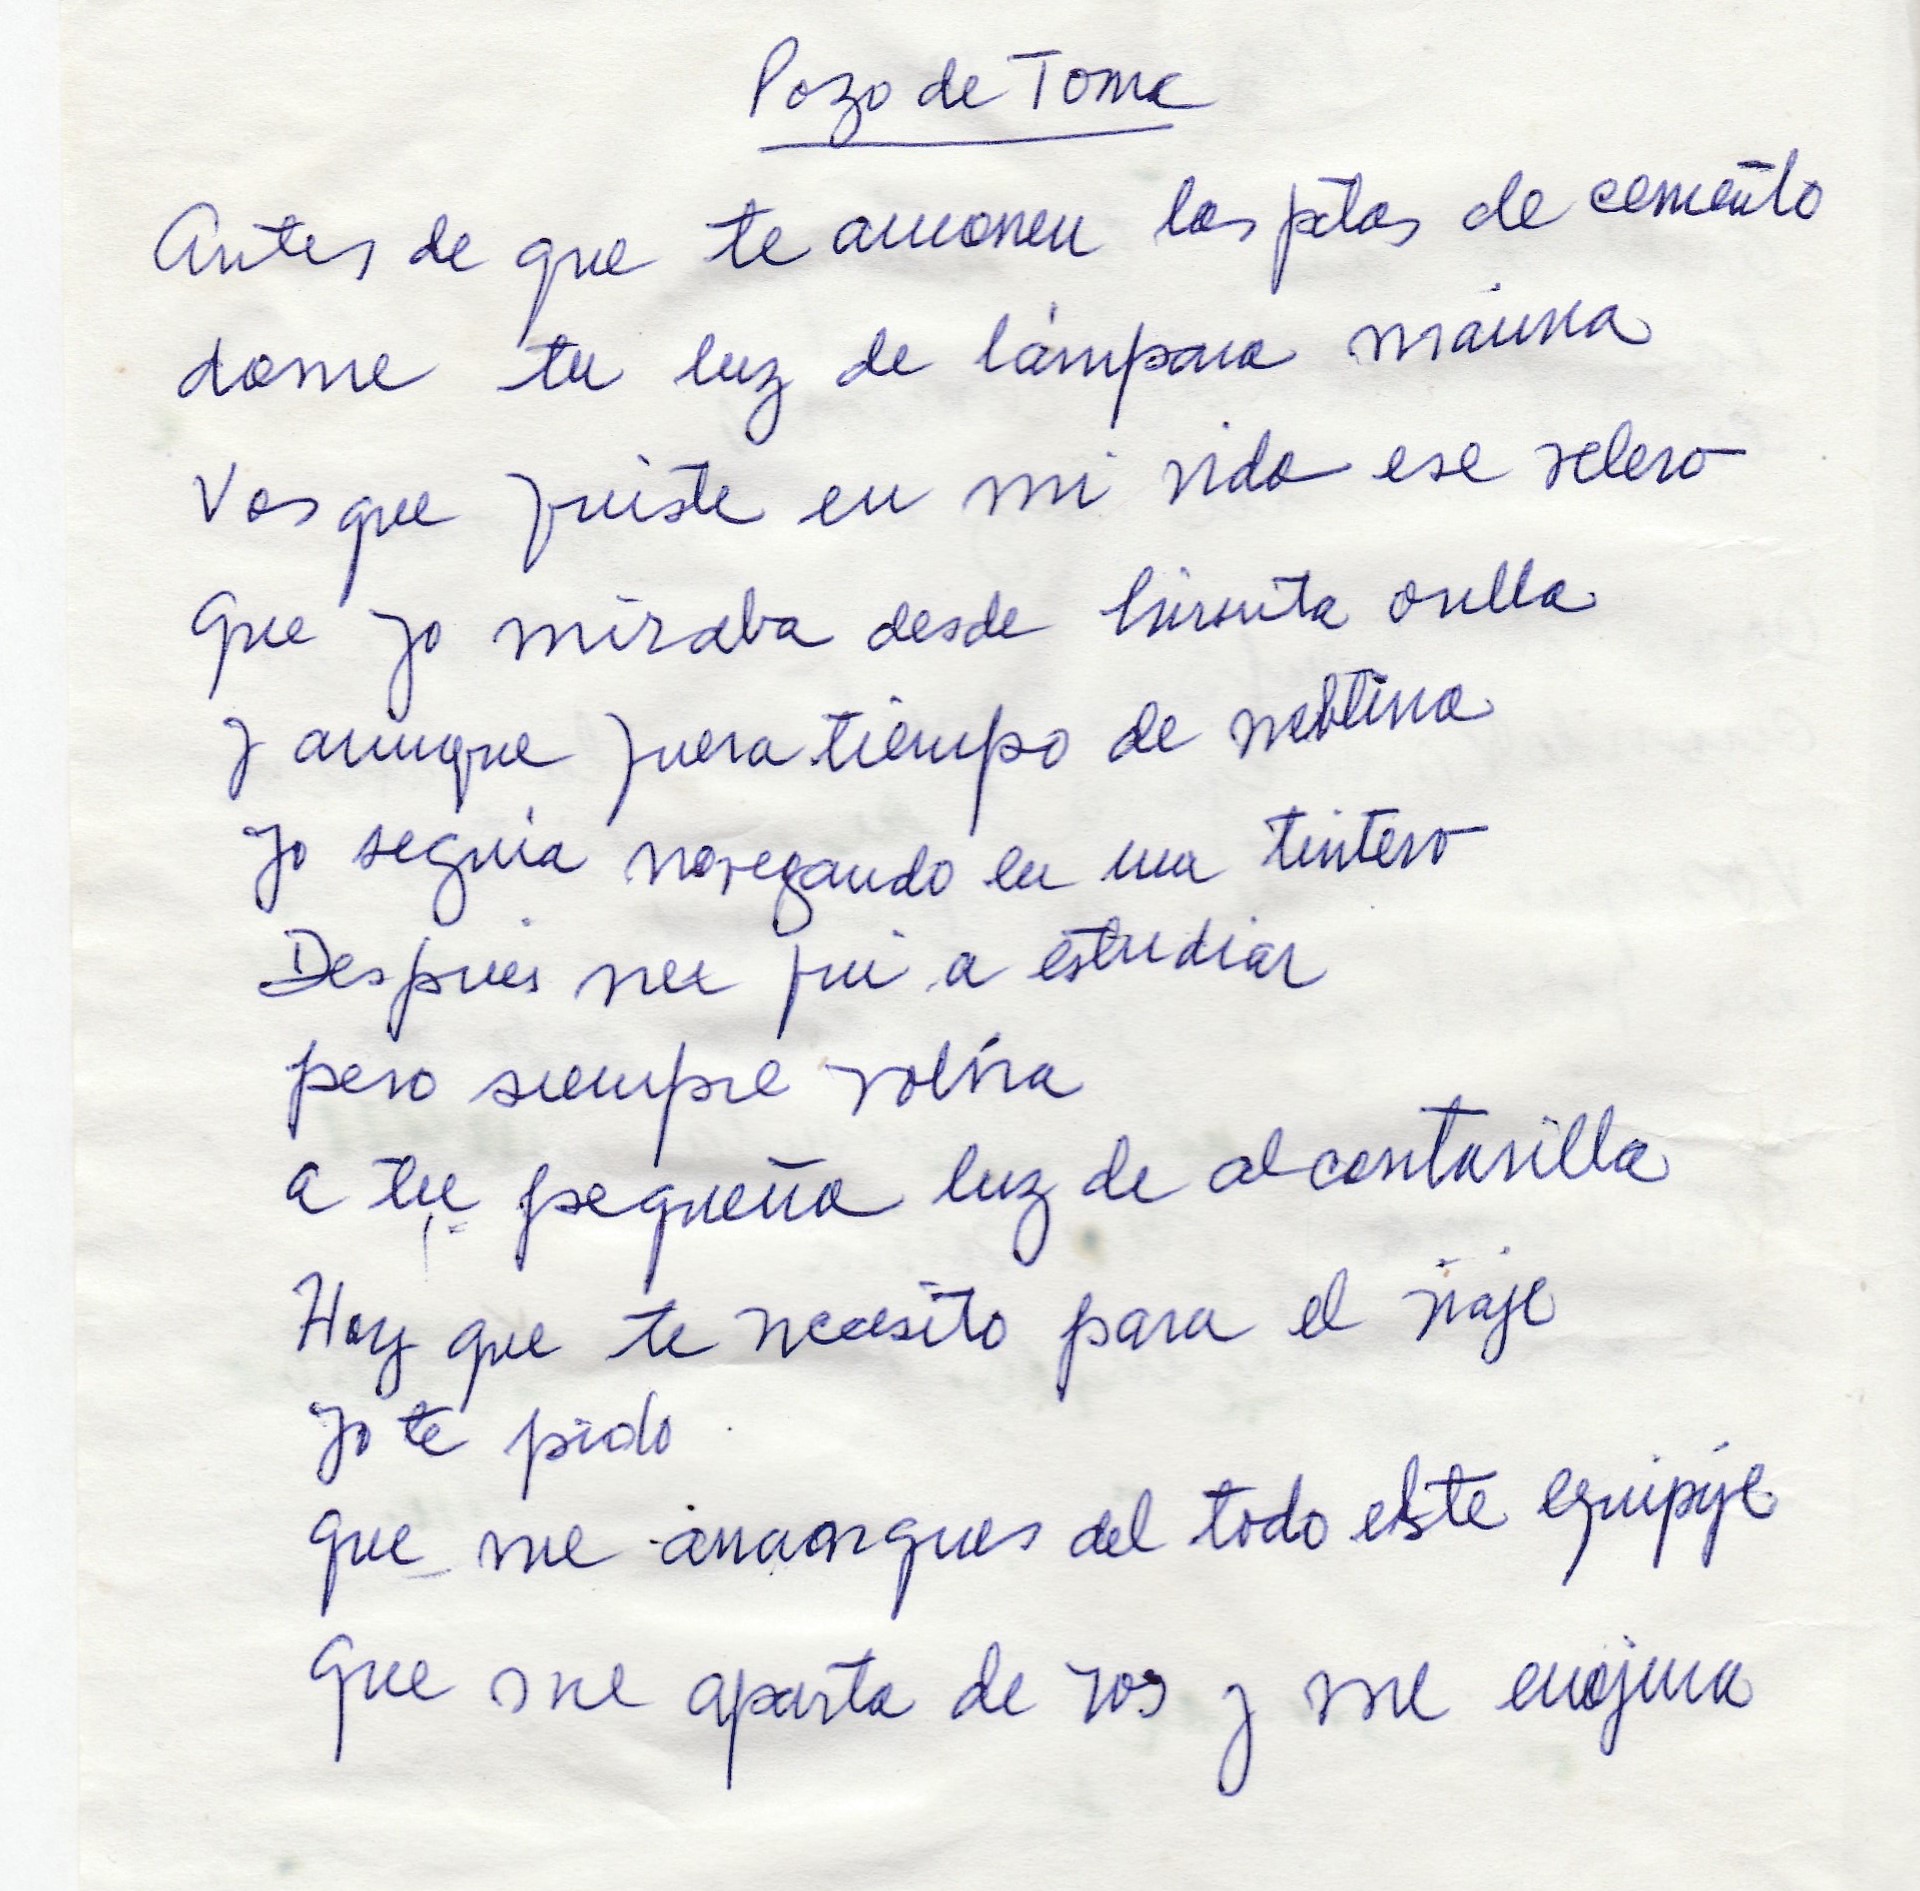 Pozo de Toma
Antes de que te arrionen las pilas de cemento
dame tu luz de lámpara marina
Vos que fuiste en mi vida ese velero
que yo miraba desde hirsuta orilla
y aunque fuera tiempo de neblina
yo seguía navegando en un tintero
Después me fui a estudiar
pero siempre volvía
a tu pequeña luz de alcantarilla
Hoy que te necesito para el viaje
yo te pido
que me arranques del todo este equipaje
que me aparta de vos y me